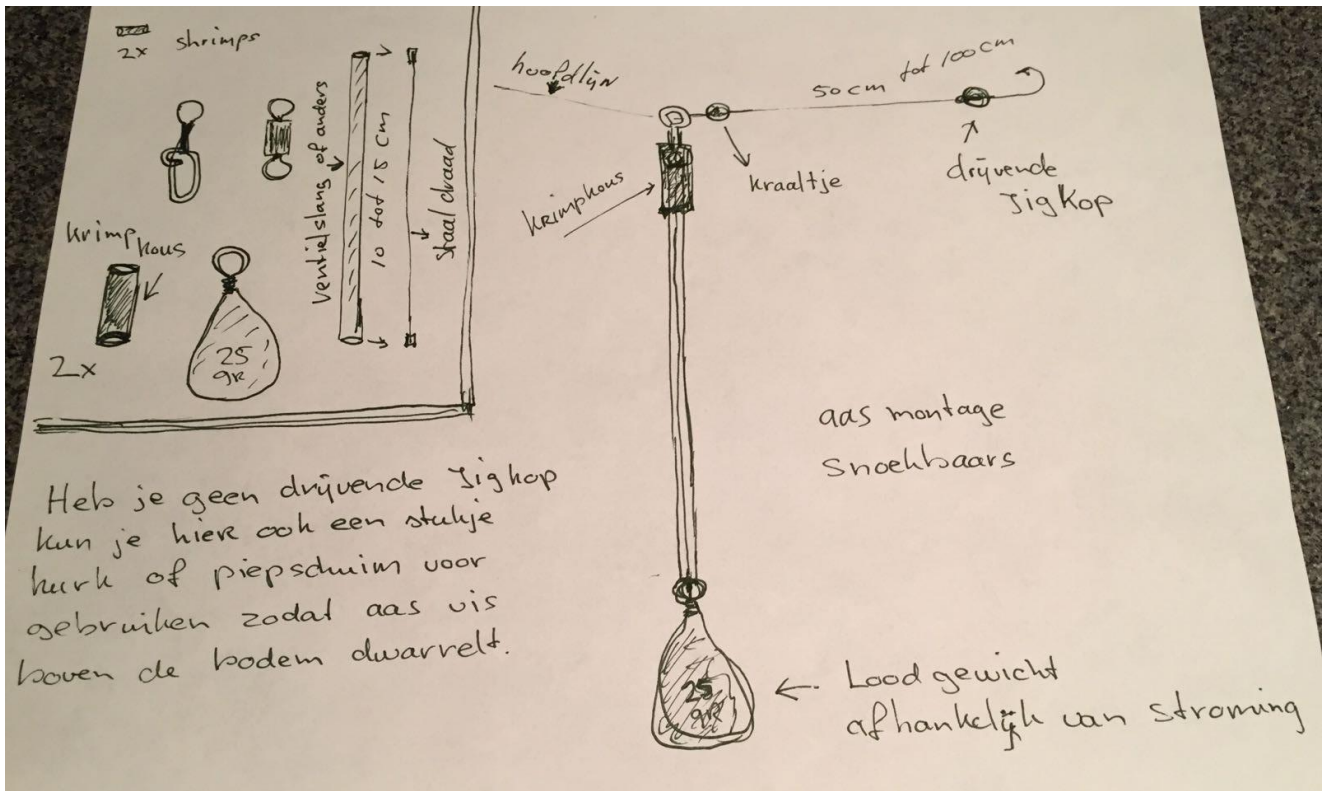 2x shrimps
Ventielslang of anders
10 tot 15 cm
staal draad
krimp kous
2x
25
gr
hoofdlijn
50 cm tot 100 cm
krimpkous
kraaltje
drijvende
Jigkop
aas montage
Snoekbaars
Heb je geen drijvende Jigkop
kun je hier ook een stukje
kurk of piepschuim voor
gebruiken zodat aas vis
boven de bodem dwarrelt.
25
gr
Lood gewicht
afhankelijk van stroming